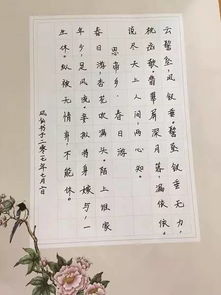 云髻坠，凤钗垂。髻坠钗垂无力，
枕函欹。翡翠屏深月落，漏依依。
说尽天上人间，两心知。
思帝乡 春日游
春日游，杏花吹满头。陌上谁家
年少，足风流。妾拟将身嫁与，一
生休。纵被无情弃，不能休。
书于二零一七年七月一日